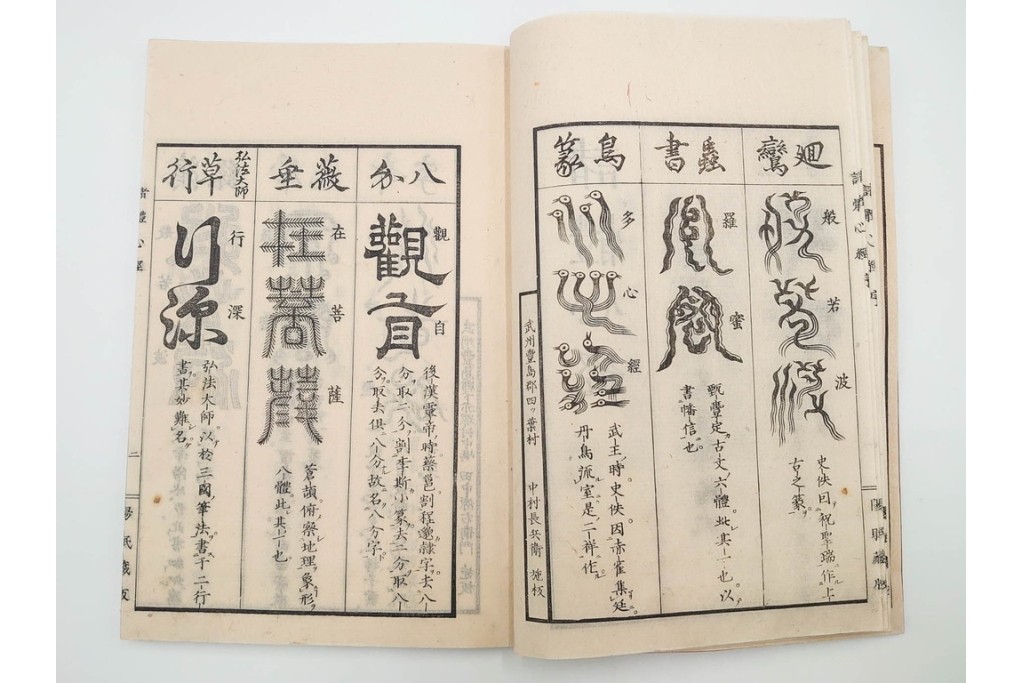 廻鸞
般
若
波
史佚因祝聖瑞作上
古之篆。
蟲書
羅
蜜
甄豐定古文六體此其一也。以
書幡信也。
鳥篆
多
心
經
武王時史佚因赤雀集廷
丹鳥流室是二祥作。
武州豐島郡四ッ葉村
中村長兵衛 施板
八分
觀
自
後漢靈帝時蔡邕割程邈隸字去八
分取二分割李斯小篆去二分取八
分取去俱八分故名八分字。
薇垂
在
菩
薩
蒼頡俯察地理象形。
八體此其一也
弘法大師
草行
行
深
弘法大師以於三國筆法書于二行
書其妙難名。
二